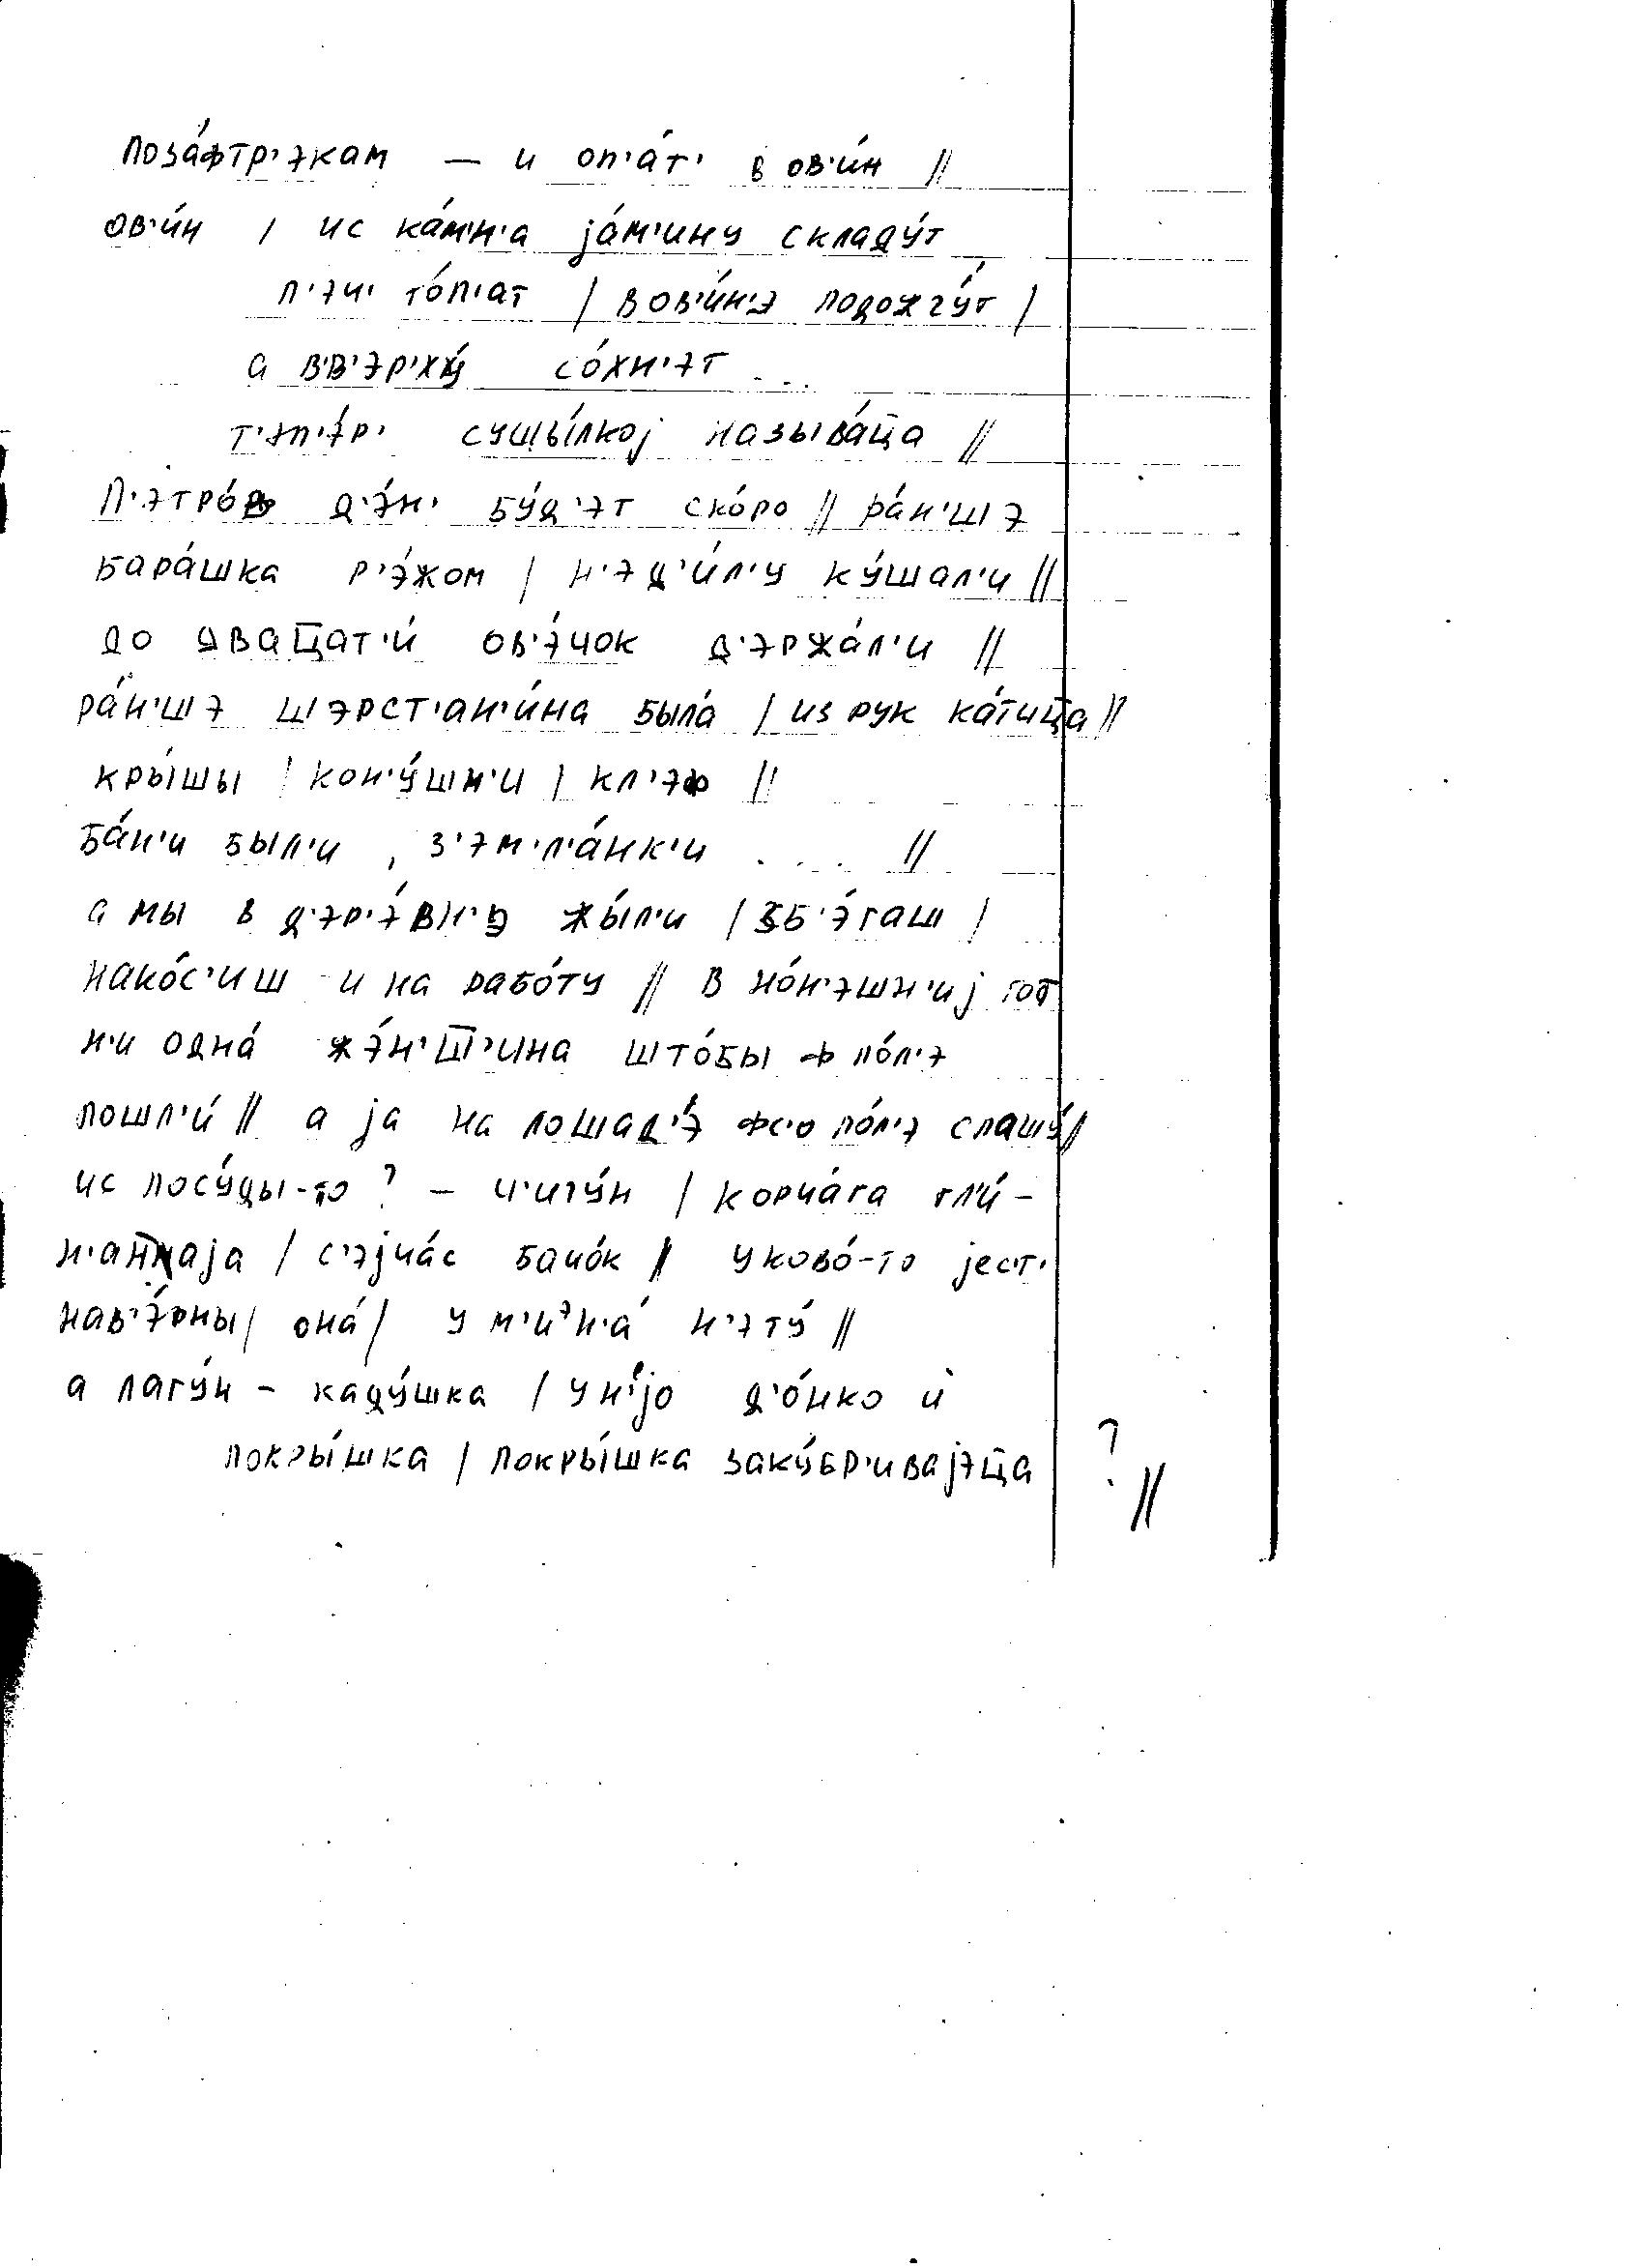 поза́фтр'экам — и оп'а́т' в ов'и́н //
ов'и́н / ис ка́м'н'а jа́м'ину складу́т
п'эч' то́п'ат / в ов'и́н'э подожгу́т /
а в'в'эр'ху́ со́хн'эт ...
т'эп'э́р' сушы́лкоj называ́ц̄а //
П'этро́в д'э́н' бу́д'эт ско́ро // ра́н'шэ
бара́шка р'э́жом / н'эд'и́л'у ку́шал'и //
до двац̄ат'и́ ов'э́чок д'эржа́л'и //
ра́н'шэ шэрст'ан'и́на была́ / из рук ка́тиц̄а //
кры́шы / кон'у́шн'и / кл'эф //
ба́н'и был'и , з'эм'л'а́нк'и ... //
а мы в д'эр'э́вн'э жы́л'и / зб'э́гаш /
нако́с'иш и на рабо́ту // в но́н'эшн'иj гот
н'и одна́ жэ́н'ш̄'ина што́бы ф по́л'э
пошл'и́ // а jа на лошад'э́ фс'о по́л'э спашу́ //
ис посу́ды-то ? – ч'игу́н / корча́га гл'и́-
н'ан̄аjа / с'эjча́с бачо́к // у ково́-то jес'т'
нав'э́рны / она́ / у м'иэн'а́ н'эту́ //
а лагу́н – каду́шка / у н'jо д'о́нко и
покры́шка / покры́шка заку́бр'иваjэц̄а ? //